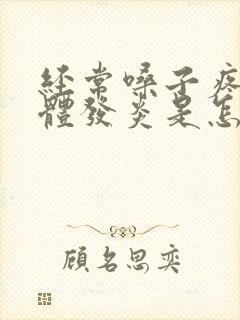 經常嗓子疼
體發炎是怎
顧名思奕